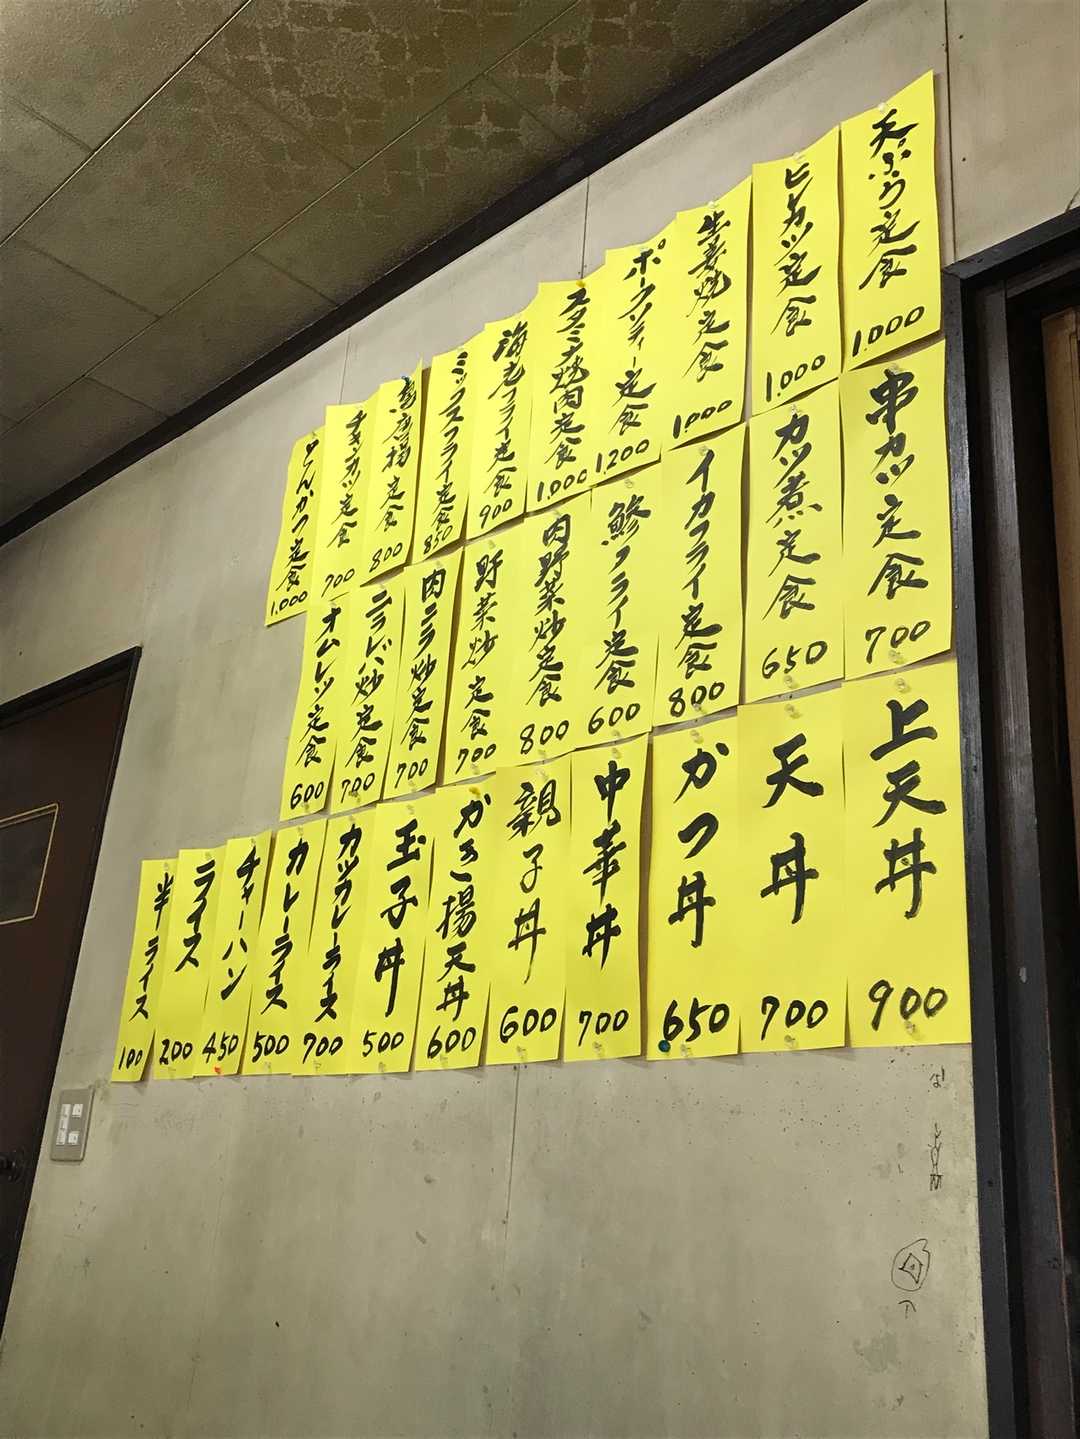 天ぷら定食 1.000
ヒレカツ定食 1.000
生姜焼定食 1.000
ポークソティー定食 1.200
スタミナ焼肉定食 1.000
海老フライ定食 900
ミックスフライ定食 850
唐揚定食 800
チキンカツ定食 700
とんかつ定食 1.000
串カツ定食 700
カツ煮定食 650
イカフライ定食 800
鯵フライ定食 600
肉野菜炒定食 800
野菜炒定食 700
肉ニラ炒定食 700
ニラレバ炒定食 700
オムレツ定食 600
上天丼 900
天丼 700
かつ丼 650
中華丼 700
親子丼 600
かき揚天丼 600
玉子丼 500
カツカレーライス 700
カレーライス 500
チャーハン 450
ライス 200
半ライス 100